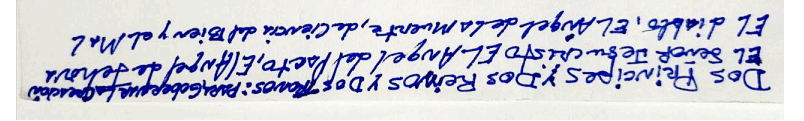 Dos Principes y Dos Reinos y Dos Tronos: Para Gobernar La Creación
EL Señor Jesucristo EL Angel del Pacto, El Angel de Jehova
EL diablo, EL Angel de La Muerte, de Ciencia del Bien y el Mal